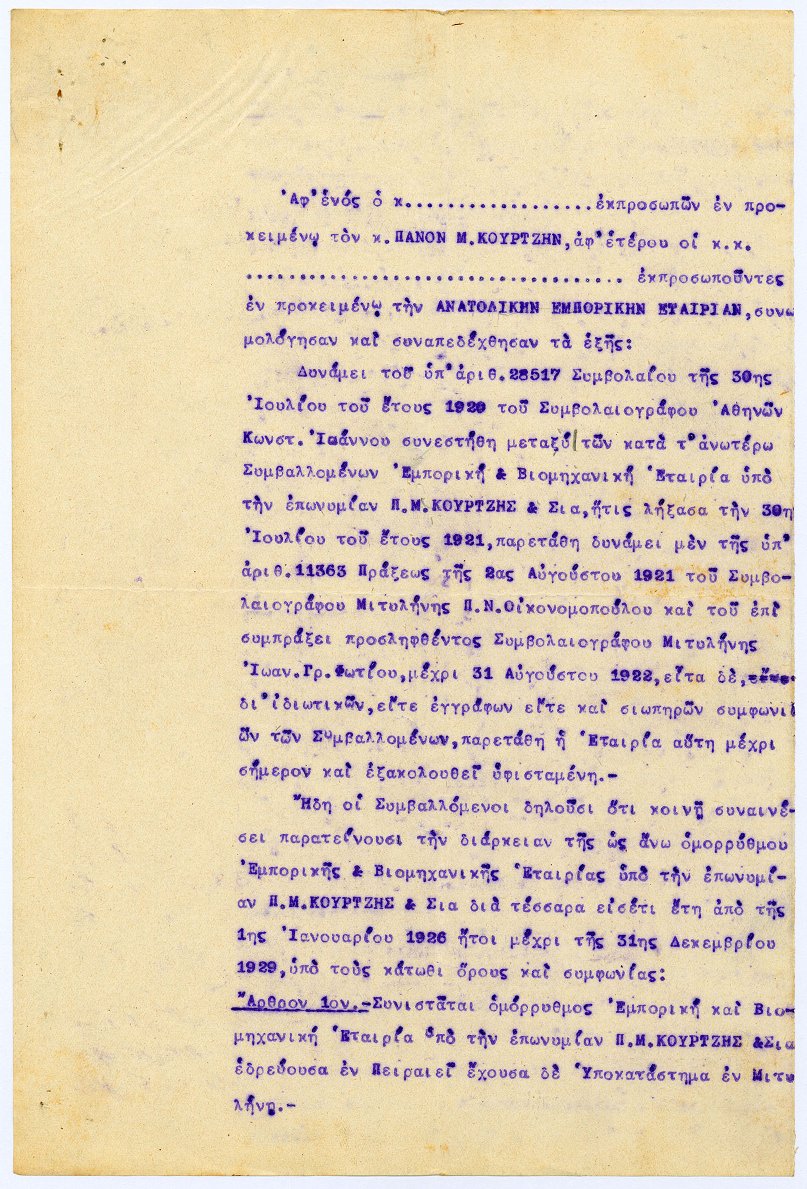 Ἀφ' ἑνός ὁ κ..................ἐκπροσωπῶν ἐν προ-
κειμένῳ τὸν κ.ΠΑΝΟΝ Μ.ΚΟΥΡΤΖΗΝ,ἀφ'ἑτέρου οἱ κ.κ.
.................................... ἐκπροσωποῦντες
ἐν προκειμένῳ τὴν ΑΝΑΤΟΛΙΚΗΝ ΕΜΠΟΡΙΚΗΝ ΕΤΑΙΡΙΑΝ,συνω
μολόγησαν καὶ συναπεδέχθησαν τὰ ἑξῆς:
Δυνάμει τοῦ ὑπ'ἀριθ.28517 Συμβολαίου τῆς 30ης
Ἰουλίου τοῦ ἔτους 1920 τοῦ Συμβολαιογράφου Ἀθηνῶν
Κωνστ.Ἰωάννου συνεστήθη μεταξύ τῶν κατὰ τ'ἀνωτέρω
Συμβαλλομένων Ἐμπορική & Βιομηχανική Ἑταιρία ὑπὸ
τὴν ἐπωνυμίαν Π.Μ.ΚΟΥΡΤΖΗΣ & Σια,ἥτις λήξασα τὴν 30η
Ἰουλίου τοῦ ἔτους 1921,παρετάθη δυνάμει μὲν τῆς ὑπ'
ἀριθ.11363 Πράξεως τῆς 2ας Αὐγούστου 1921 τοῦ Συμβο-
λαιογράφου Μιτυλήνης Π.Ν.Οἰκονομοπούλου καὶ τοῦ ἐπὶ
συμπράξει προσληφθέντος Συμβολαιογράφου Μιτυλήνης
Ἰωαν.Γρ.Φωτίου,μέχρι 31 Αὐγούστου 1922,εἶτα δὲ,
δι'ἰδιωτικῶν,εἴτε ἐγγράφων εἴτε καὶ σιωπηρῶν συμφωνι
ῶν τῶν Συμβαλλομένων,παρετάθη ἡ Ἑταιρία αὕτη μέχρι
σήμερον καὶ ἐξακολουθεῖ ὑφισταμένη.-
Ἤδη οἱ Συμβαλλόμενοι δηλοῦσι ὅτι κοινῇ συναινέ-
σει παρατείνουσι τὴν διάρκειαν τῆς ὡς ἄνω ὁμορρύθμου
Ἐμπορικῆς & Βιομηχανικῆς Ἑταιρίας ὑπὸ τὴν ἐπωνυμί-
αν Π.Μ.ΚΟΥΡΤΖΗΣ & Σια διὰ τέσσαρα εἰσέτι ἔτη ἀπὸ τῆς
1ης Ἰανουαρίου 1926 ἤτοι μέχρι τῆς 31ης Δεκεμβρίου
1929,ὑπὸ τοὺς κάτωθι ὅρους καὶ συμφωνίας:
Ἄρθρον 1ον.-Συνιστᾶται ὁμόρρυθμος Ἐμπορική καὶ Βιο-
μηχανική Ἑταιρία ὑπὸ τὴν ἐπωνυμίαν Π.Μ.ΚΟΥΡΤΖΗΣ &Σια
ἑδρεύουσα ἐν Πειραιεῖ ἔχουσα δὲ Ὑποκατάστημα ἐν Μιτυ
λήνῃ.-